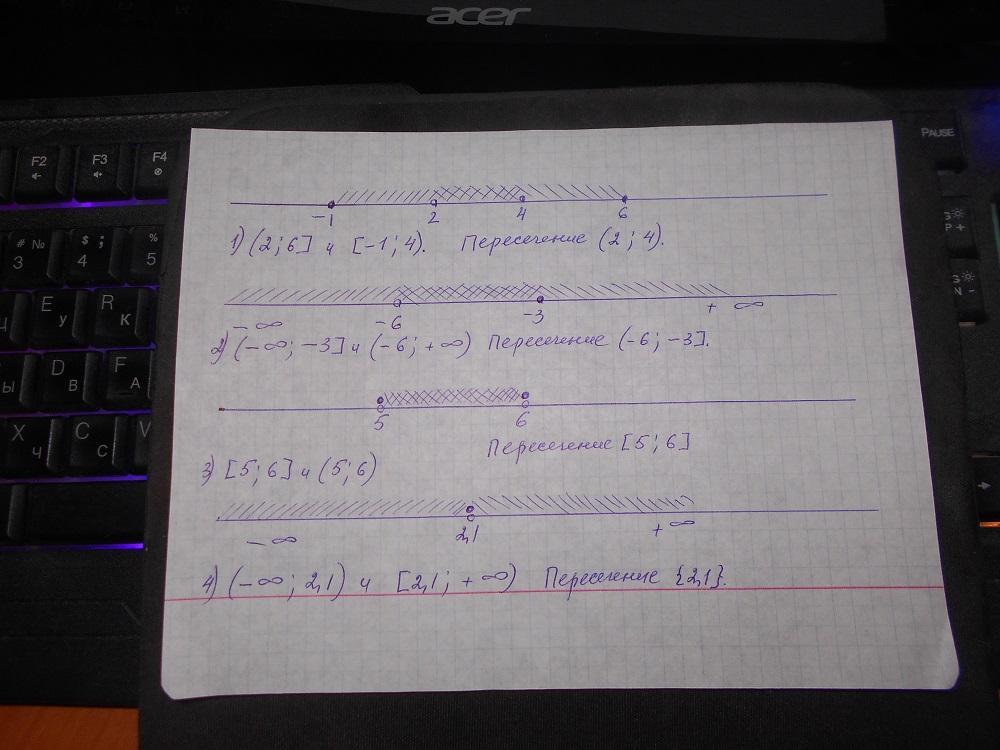 acer
PAUSE
F2 F3 F4
# № 3 $ ; 4 % 5
E У R К
Ы D В F А
X Ч C С
-1 2 4 6
1) (2; 6] и [-1; 4). Пересечение (2; 4).
-∞ -6 -3 +∞
2) (-∞; -3] и (-6; +∞) Пересечение (-6; -3].
5 6
Пересечение [5; 6]
3) [5; 6] и (5; 6)
-∞ 2,1 +∞
4) (-∞; 2,1) и [2,1; +∞) Пересечение {2,1}.